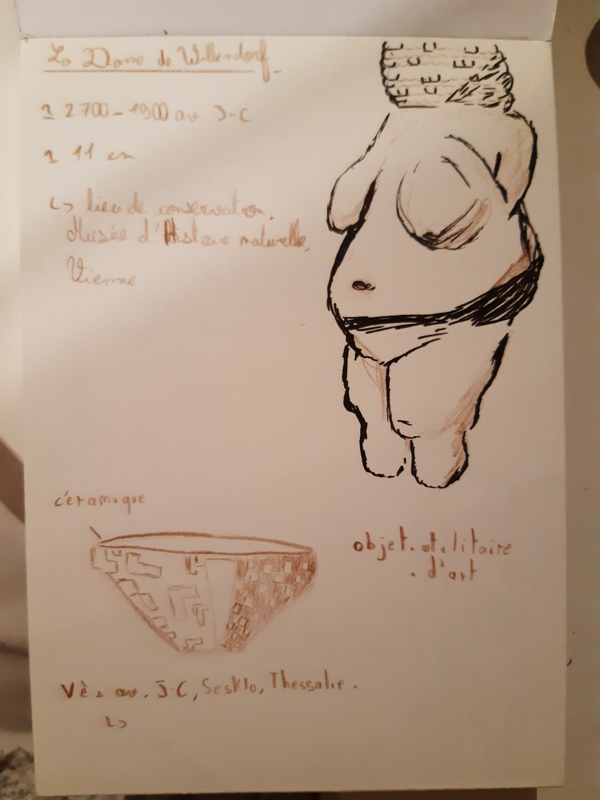 La Dame de Willendorf
2 2 700 - 1900 av J-C
2 11 cm
↳ lieu de conservation.
Musée d'Histoire naturelle,
Vienne
céramique
objet. utilitaire
. d'art
Vè. av. J-C, Sesklo, Thessalie.
↳